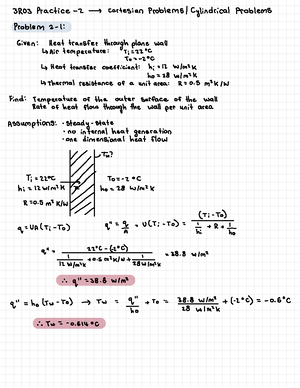 3R03 Practice -2 → Cartesian Problems/Cylindrical Problems
Problem 2-1:
Given: Heat transfer through plane wall
↳ Air temperature: Ti = 22°C
To = -2°C
↳ Heat transfer coefficient: hi = 12 W/m²K
ho = 28 W/m²K
↳ Thermal resistance of a unit area: R = 0.5 m²K/W
Find: Temperature of the outer surface of the wall
Rate of heat flow through the wall per unit area
Assumptions: • Steady-state
• no internal heat generation
• one dimensional heat flow
Tw?
Ti = 22°C
hi = 12 W/m²K
R = 0.5 m²K/W
To = -2°C
ho = 28 W/m²K
q = UA(Ti - To) q" = q/A = U(Ti - To) = (Ti - To) / (1/hi + R + 1/ho)
q" = 22°C - (-2°C) / (1/12 W/m²K + 0.5 m²K/W + 1/28 W/m²K) = 38.8 W/m²
∴ q" = 38.8 W/m²
q" = ho (Tw - To) → Tw = q"/ho + To = 38.8 W/m² / 28 W/m²K + (-2°C) = -0.6°C
∴ Tw = -0.614°C